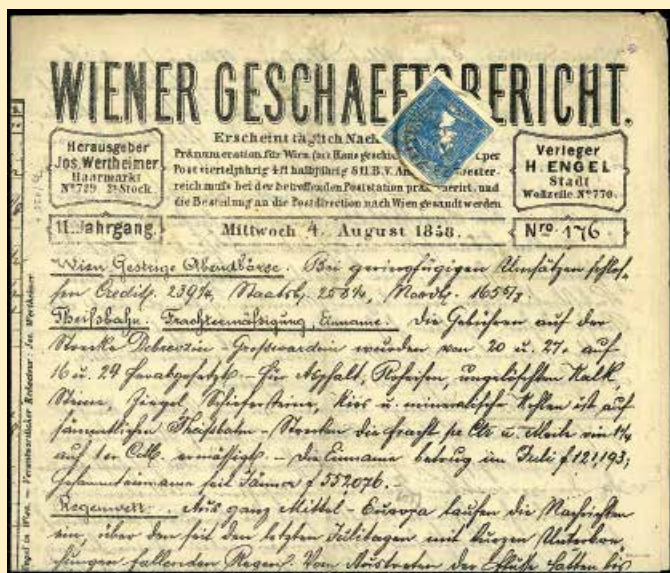 WIENER GESCHAEFTSBERICHT.
Herausgeber
Jos. Wertheimer
Haarmarkt
Nº 729. 2ᵗ Stock
Erscheint täglich Nach
Pränumeration für Wien ins Haus geschi per
Post vierteljährig 4 fl halbjährig 8 fl B.V. ester-
reich muſs bei der betreffenden Poststation prä erirt, und
die Bestellung an die Postdirection nach Wien gesandt werden
Verleger
H. ENGEL
Stadt
Wollzeile Nº 770.
II. Jahrgang.
Mittwoch 4. August 1858.
Nro. 176
Wien. Gestrige Abendbörse. Bei geringfügigen Umsätzen schlos-
sen Credit. 239¼, Staatsb. 258¼, Nordb. 165⅝
Theiſsbahn. Frachtermäſsigung, Einname. Die Gebühren auf der
Strecke Debreczin - Groſswardein wurden von 20 u. 27. auf
16 u. 24 herabgesetzt. - Für Asphalt, Roheisen, ungelöschten Kalk,
Steine, Ziegel, Schiefersteine, Kies u. mineralische Kohlen ist auf
sämmtlichen Theiſsbahn-Strecken die Fracht pr Ctr u. Meile von 1¼
auf 1 er ermäſsigt. - Die Einname betrug im Juli f. 121,193;
Gesammteinname seit Jänner f 552076. -
Regenwett. Aus ganz Mittel-Europa laufen die Nachrichten
ein, über den seit den letzten Julitagen mit kurzen Unterbre-
chungen fallenden Regen. Vom Austreten der Flüſse hatten bis
Engel in Wien. — Verantwortlicher Redacteur: Jos. Wertheimer